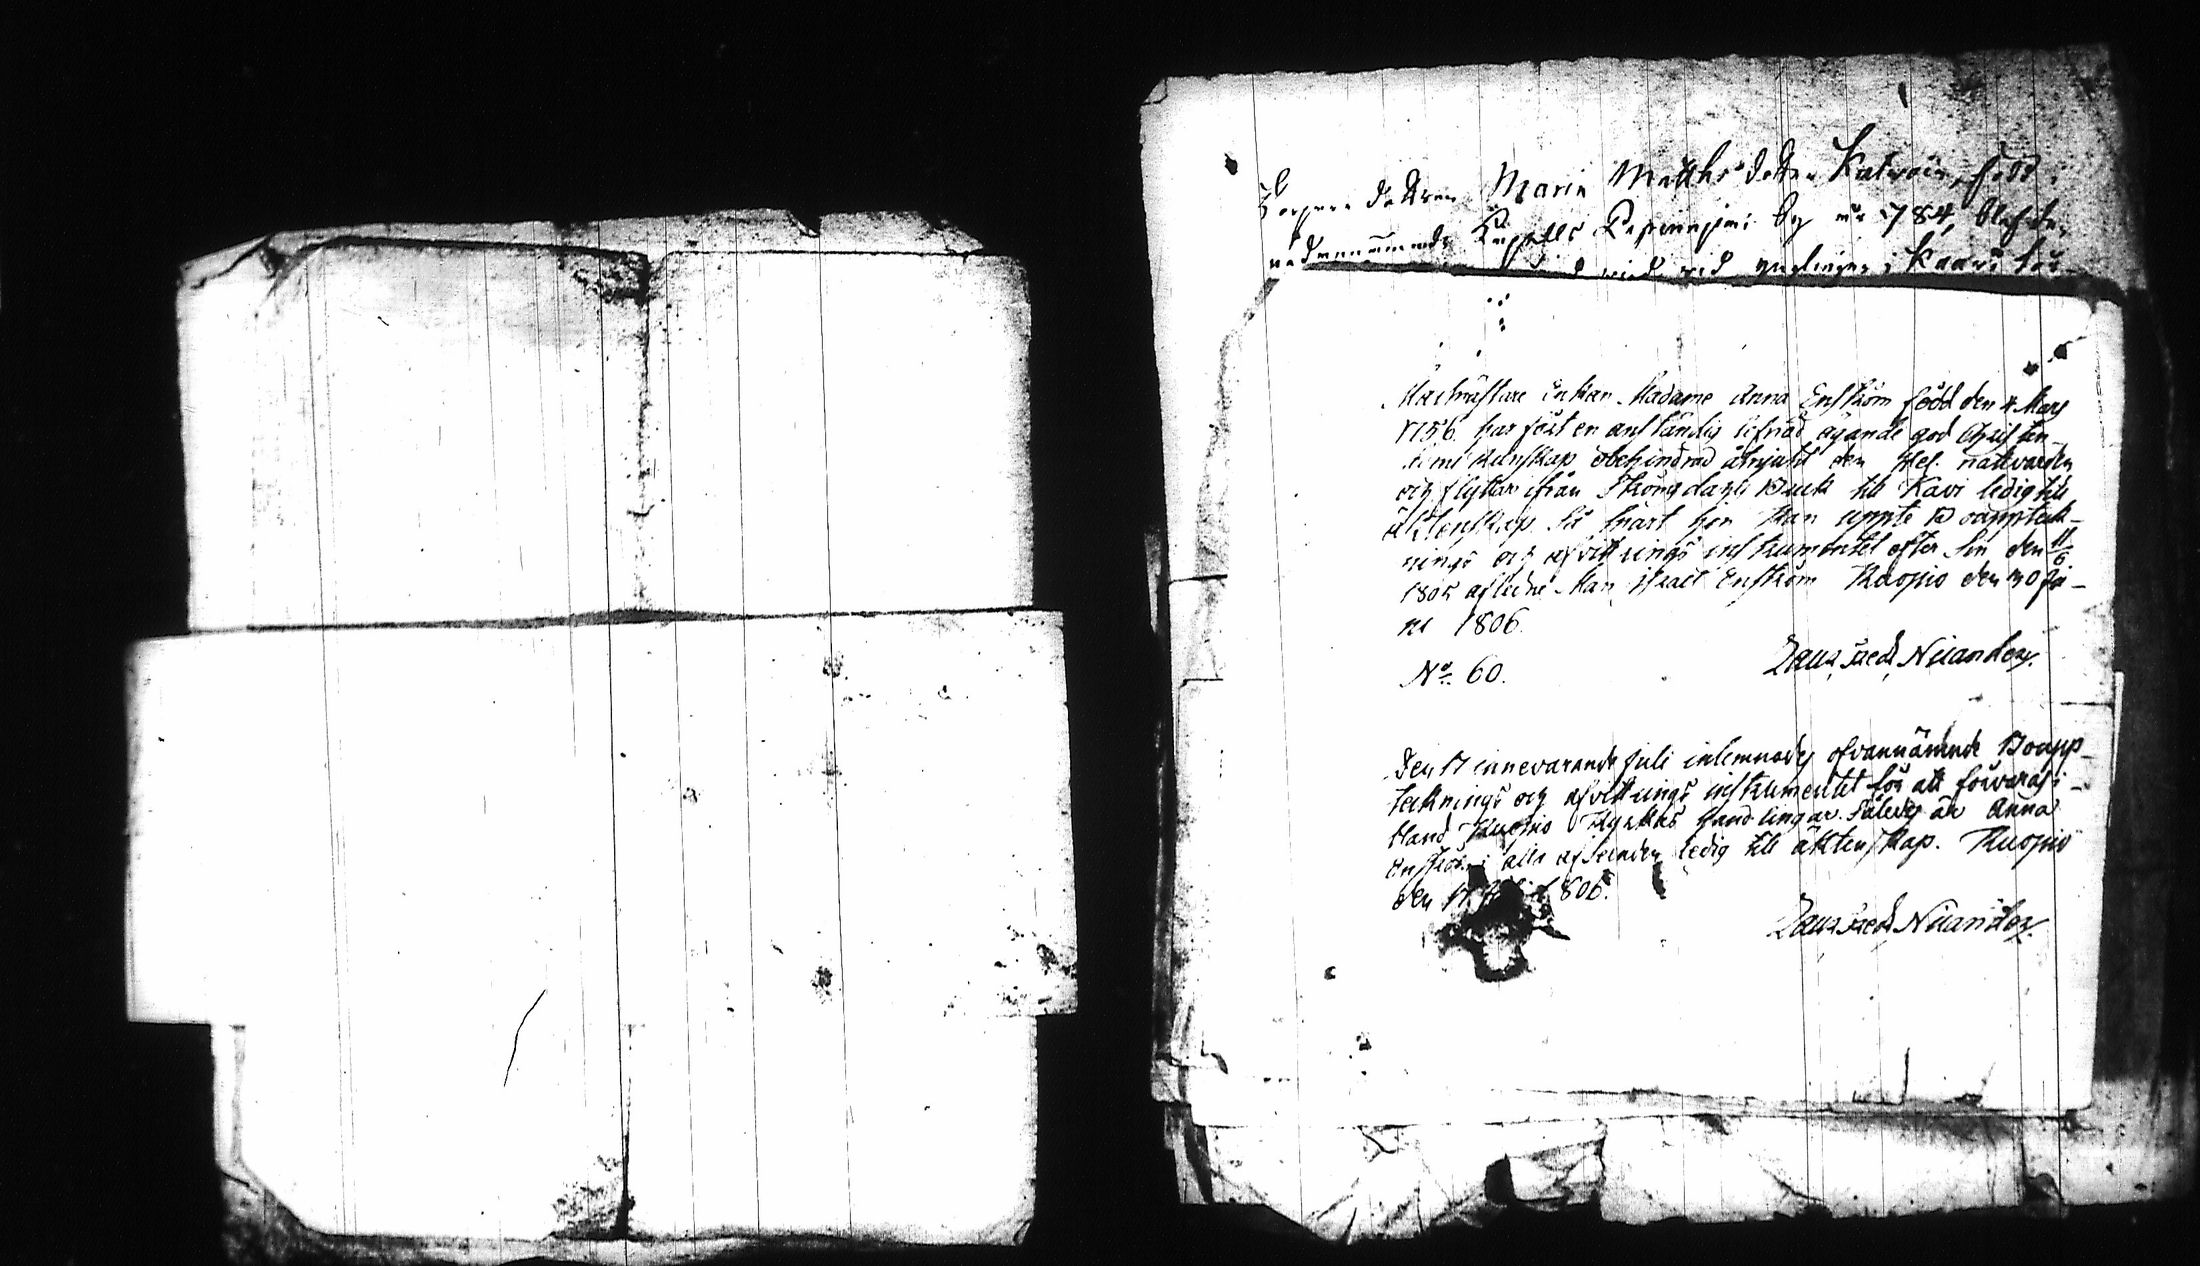 dottren Maria Matths dotter Katrain, född i
nedannämnde Capells by år 1784,
wid
Enkan Madame Anna Enström född den 4 Mars
1756. har fört en anständig lefnad ägande god Christen-
doms kunskap obehindrad åtnjutit den Hel. nattvarden
och flyttar ifrån Strömsdahls Bruk till Kavi ledig till
äktenskap så snart hon kan uppte Bouppteck-
nings och afvittrings instrumentet efter sin den 11/6
1805 afledne Man Israel Enström Kuopio den 30 Ju-
ni 1806.
Nº 60.
Zach. Fred. Niiander.
Den 17 innevarande Juli inlemnades ofvannämnde Boupp-
tecknings och afvittrings instrumentet för att förvaras i-
bland Kuopio Kyrkas handlingar. Således är Anna
Enström i alla afseenden ledig till äktenskap. Kuopio
den 17 Juli 1806.
Zach Fred. Niiander.